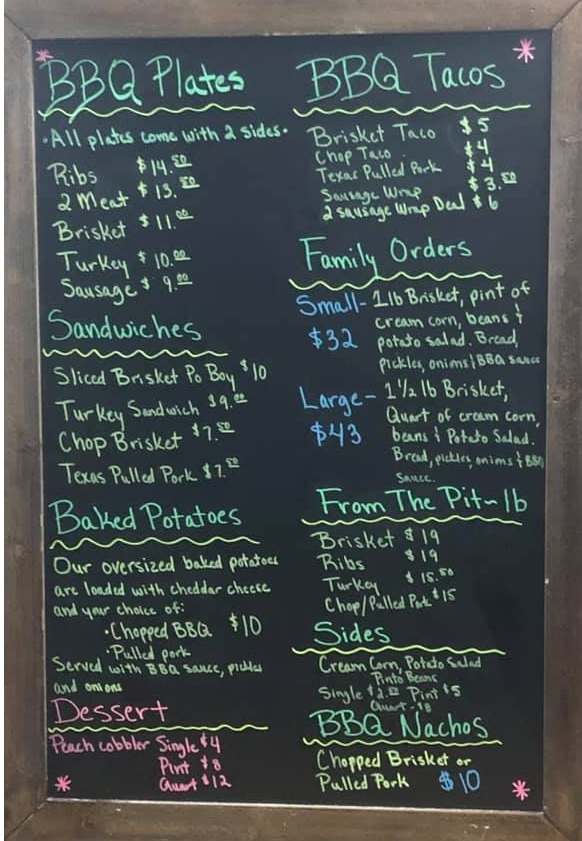 BBQ Plates
•All plates come with 2 sides•
Ribs $14.50
2 Meat $13.50
Brisket $11.00
Turkey $10.00
Sausage $9.00
Sandwiches
Sliced Brisket Po Boy $10
Turkey Sandwich $9.00
Chop Brisket $7.50
Texas Pulled Pork $7.50
Baked Potatoes
Our oversized baked potatoes
are loaded with cheddar cheese
and your choice of:
•Chopped BBQ $10
•Pulled pork
Served with BBQ sauce, pickles
and onions
Dessert
Peach cobbler Single $4
Pint $8
Quart $12
BBQ Tacos
Brisket Taco $5
Chop Taco $4
Texas Pulled Pork $4
Sausage Wrap $3.50
2 sausage Wrap Deal $6
Family Orders
Small- 1lb Brisket, pint of
$32 cream corn, beans &
potato salad. Bread,
pickles, onions & BBQ sauce
Large- 1 1/2 lb Brisket,
$43 Quart of cream corn,
beans & Potato Salad.
Bread, pickles, onions & BBQ
Sauce.
From The Pit~lb
Brisket $19
Ribs $19
Turkey $15.50
Chop/Pulled Pork $15
Sides
Cream Corn, Potato Salad
Pinto Beans
Single $2.00 Pint $5
Quart-$8
BBQ Nachos
Chopped Brisket or
Pulled Pork $10